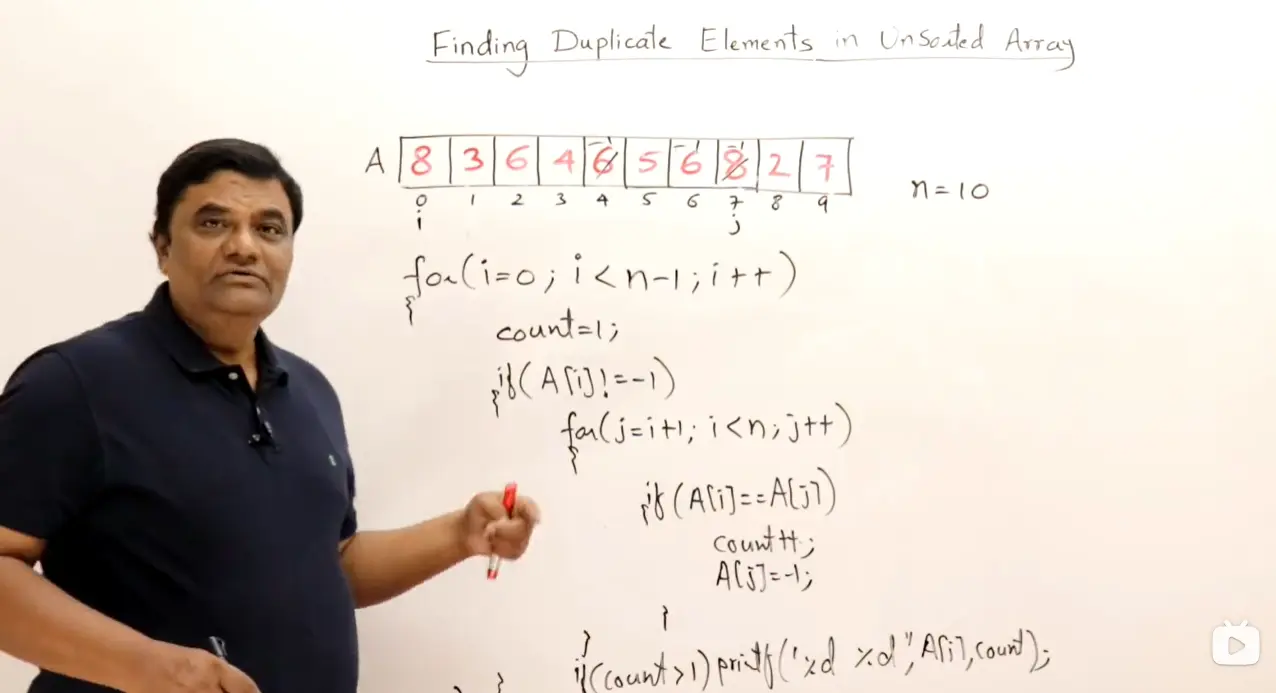 Finding Duplicate Elements in Unsorted Array
A 8 3 6 4 6 5 6 8 2 7
-1 -1 -1
0 1 2 3 4 5 6 7 8 9
n=10
i j
for(i=0; i<n-1; i++)
{
count=1;
if(A[i]!=-1)
{
for(j=i+1; i<n; j++)
{
if(A[i]==A[j])
{
count++;
A[j]=-1;
}
}
if(count>1)printf("%d %d",A[i],count);
} }